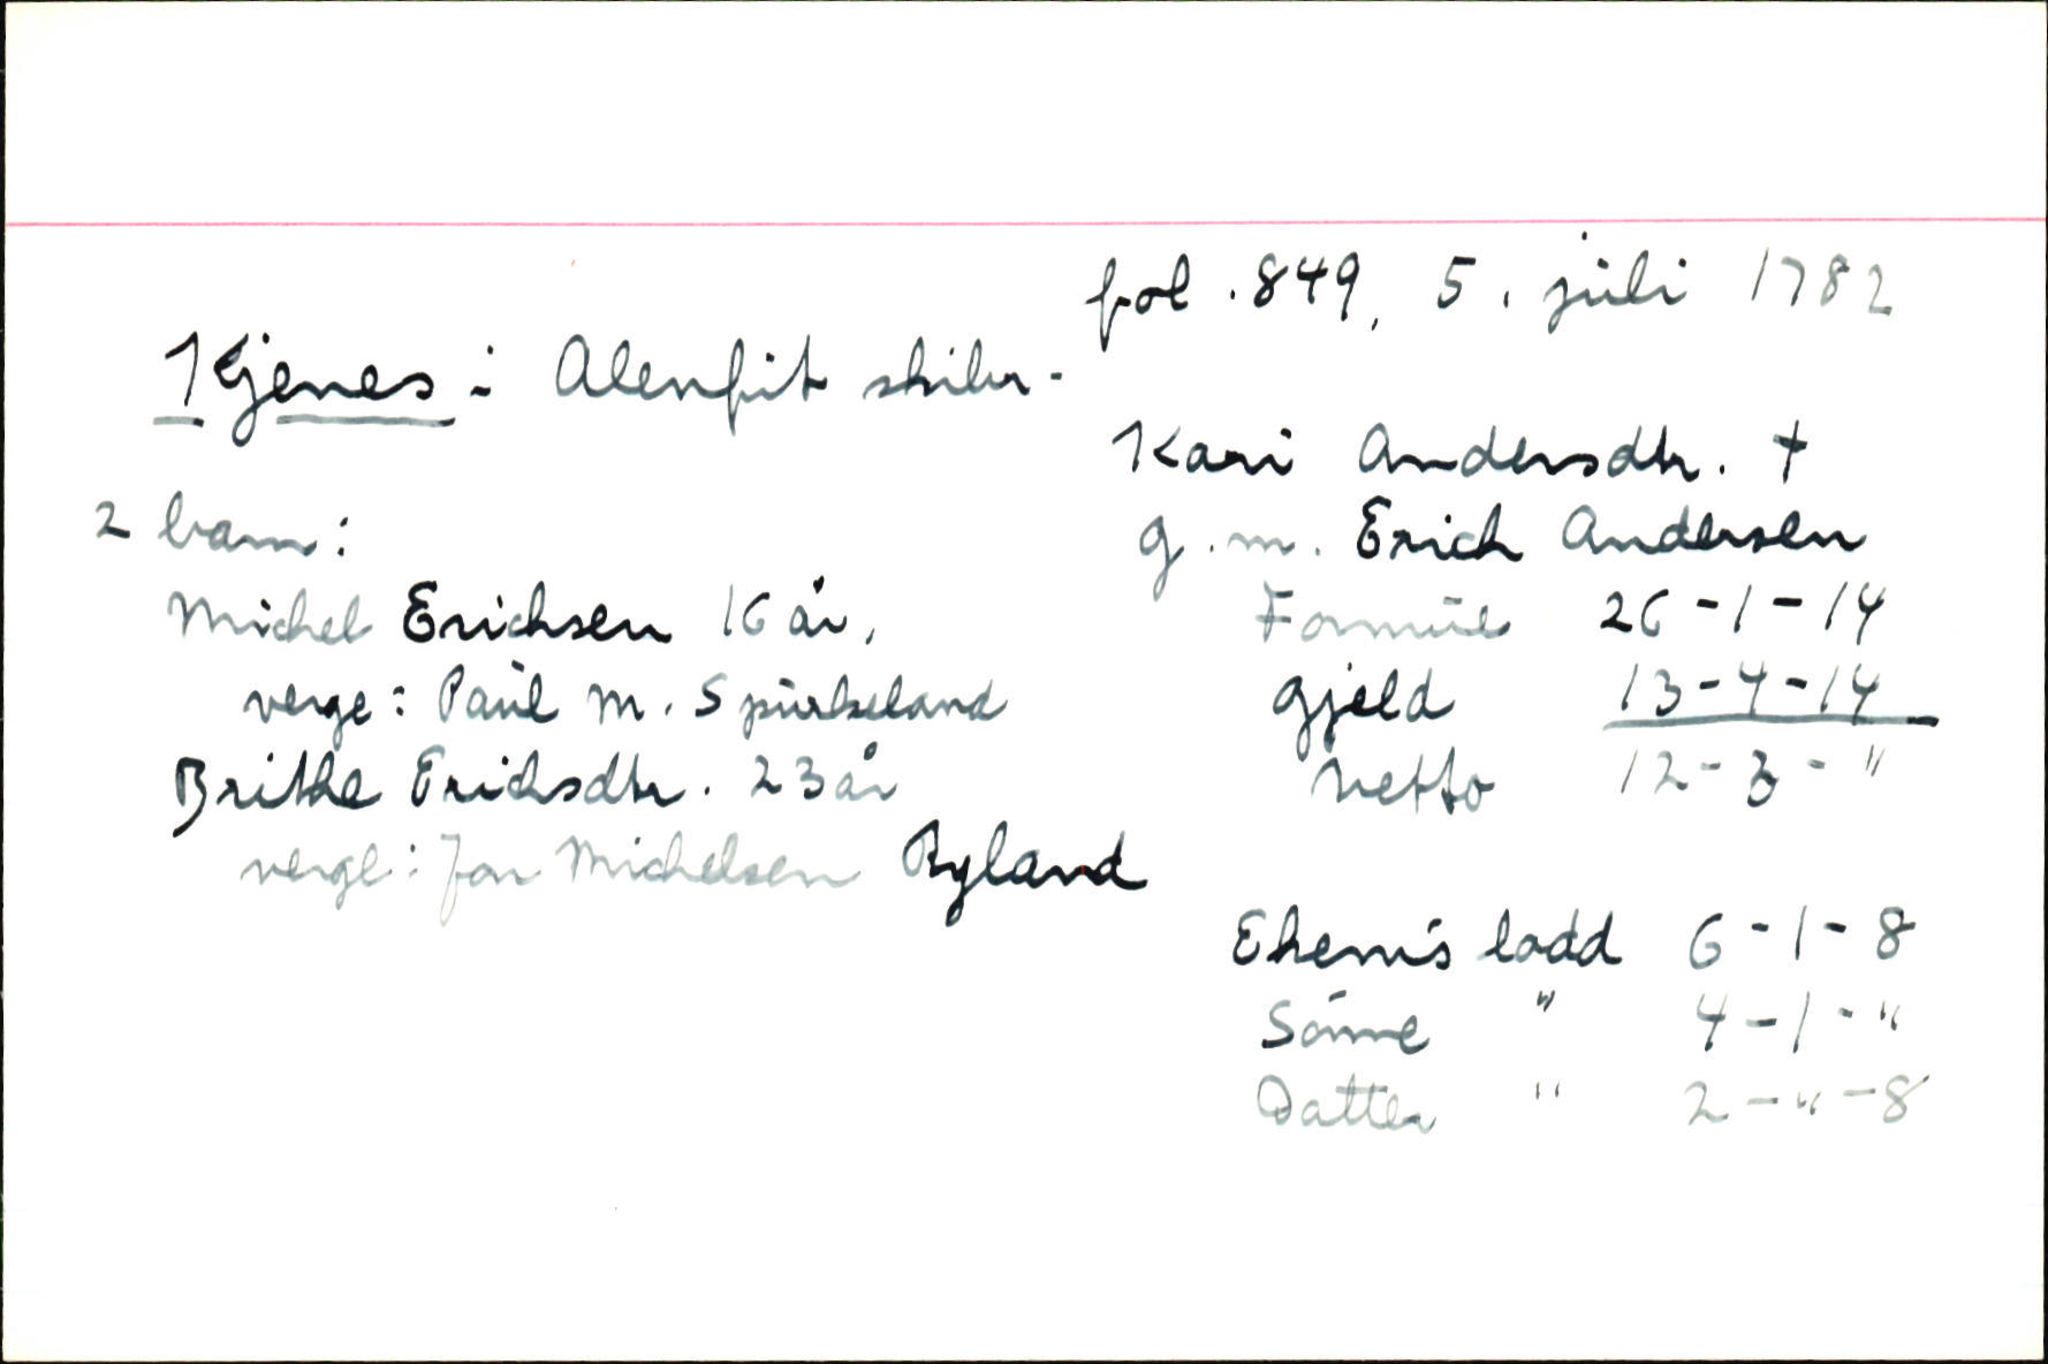 fol. 849, 5. juli 1782
Kjenes i Alenfit skibr.
Kari Andersdtr. †
g.m. Erich Andersen
Formue 26-1-14
Gjeld 13-4-14
Netto 12-3-"
2 barn:
Michel Erichsen 16 år,
verge: Paul M. Spurkeland
Brithe Erichsdtr. 23 år
verge: Jon Michelsen Ryland
Ekem's lodd 6-1-8
Sönne " 4-1-"
Datter " 2-"-8